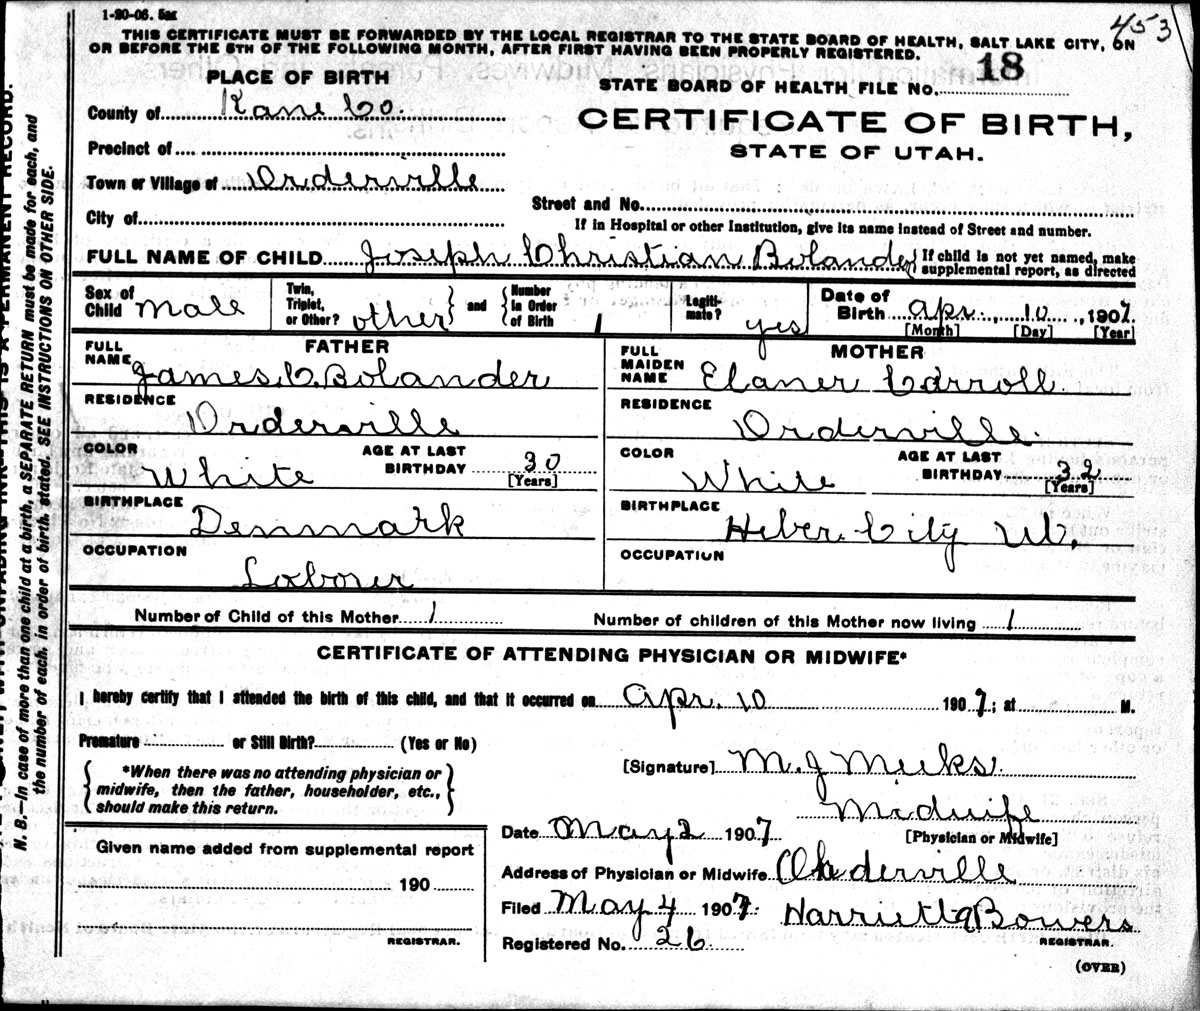 1-20-06. 5m
453
THIS CERTIFICATE MUST BE FORWARDED BY THE LOCAL REGISTRAR TO THE STATE BOARD OF HEALTH, SALT LAKE CITY, ON
OR BEFORE THE 5TH OF THE FOLLOWING MONTH, AFTER FIRST HAVING BEEN PROPERLY REGISTERED.
PLACE OF BIRTH
STATE BOARD OF HEALTH FILE No. 18
County of Kane Co.
CERTIFICATE OF BIRTH,
STATE OF UTAH.
Precinct of
Town or Village of Orderville
Street and No.
City of
If in Hospital or other Institution, give its name instead of Street and number.
FULL NAME OF CHILD Joseph Christian Bolander { If child is not yet named, make supplemental report, as directed
Sex of Child Male
Twin, Triplet, or Other? other } and { Number in Order of Birth 1
Legiti- mate? yes
Date of Birth Apr. 10, 1907
[Month] [Day] [Year]
FATHER
FULL NAME James C. Bolander
RESIDENCE
Orderville
COLOR White
AGE AT LAST BIRTHDAY 30
[Years]
BIRTHPLACE
Denmark
OCCUPATION
Laborer
MOTHER
FULL MAIDEN NAME Elaner Carroll
RESIDENCE
Orderville.
COLOR White
AGE AT LAST BIRTHDAY 32
[Years]
BIRTHPLACE
Heber City Ut.
OCCUPATION
Number of Child of this Mother 1
Number of children of this Mother now living 1
CERTIFICATE OF ATTENDING PHYSICIAN OR MIDWIFE*
I hereby certify that I attended the birth of this child, and that it occurred on Apr. 10 1907; at M.
Premature or Still Birth? (Yes or No)
{ *When there was no attending physician or
midwife, then the father, householder, etc.,
should make this return. }
[Signature] M. J Meeks.
Midwife
[Physician or Midwife]
Date May 2 1907
Given name added from supplemental report
190
REGISTRAR.
Address of Physician or Midwife Orderville
Filed May 4 1907. Harriett A Bowers
REGISTRAR.
Registered No. 26
(OVER)
N. B.—In case of more than one child at a birth, a SEPARATE RETURN must be made for each, and
the number of each, in order of birth, stated. SEE INSTRUCTIONS ON OTHER SIDE.
UNFADING INK—THIS IS A PERMANENT RECORD.